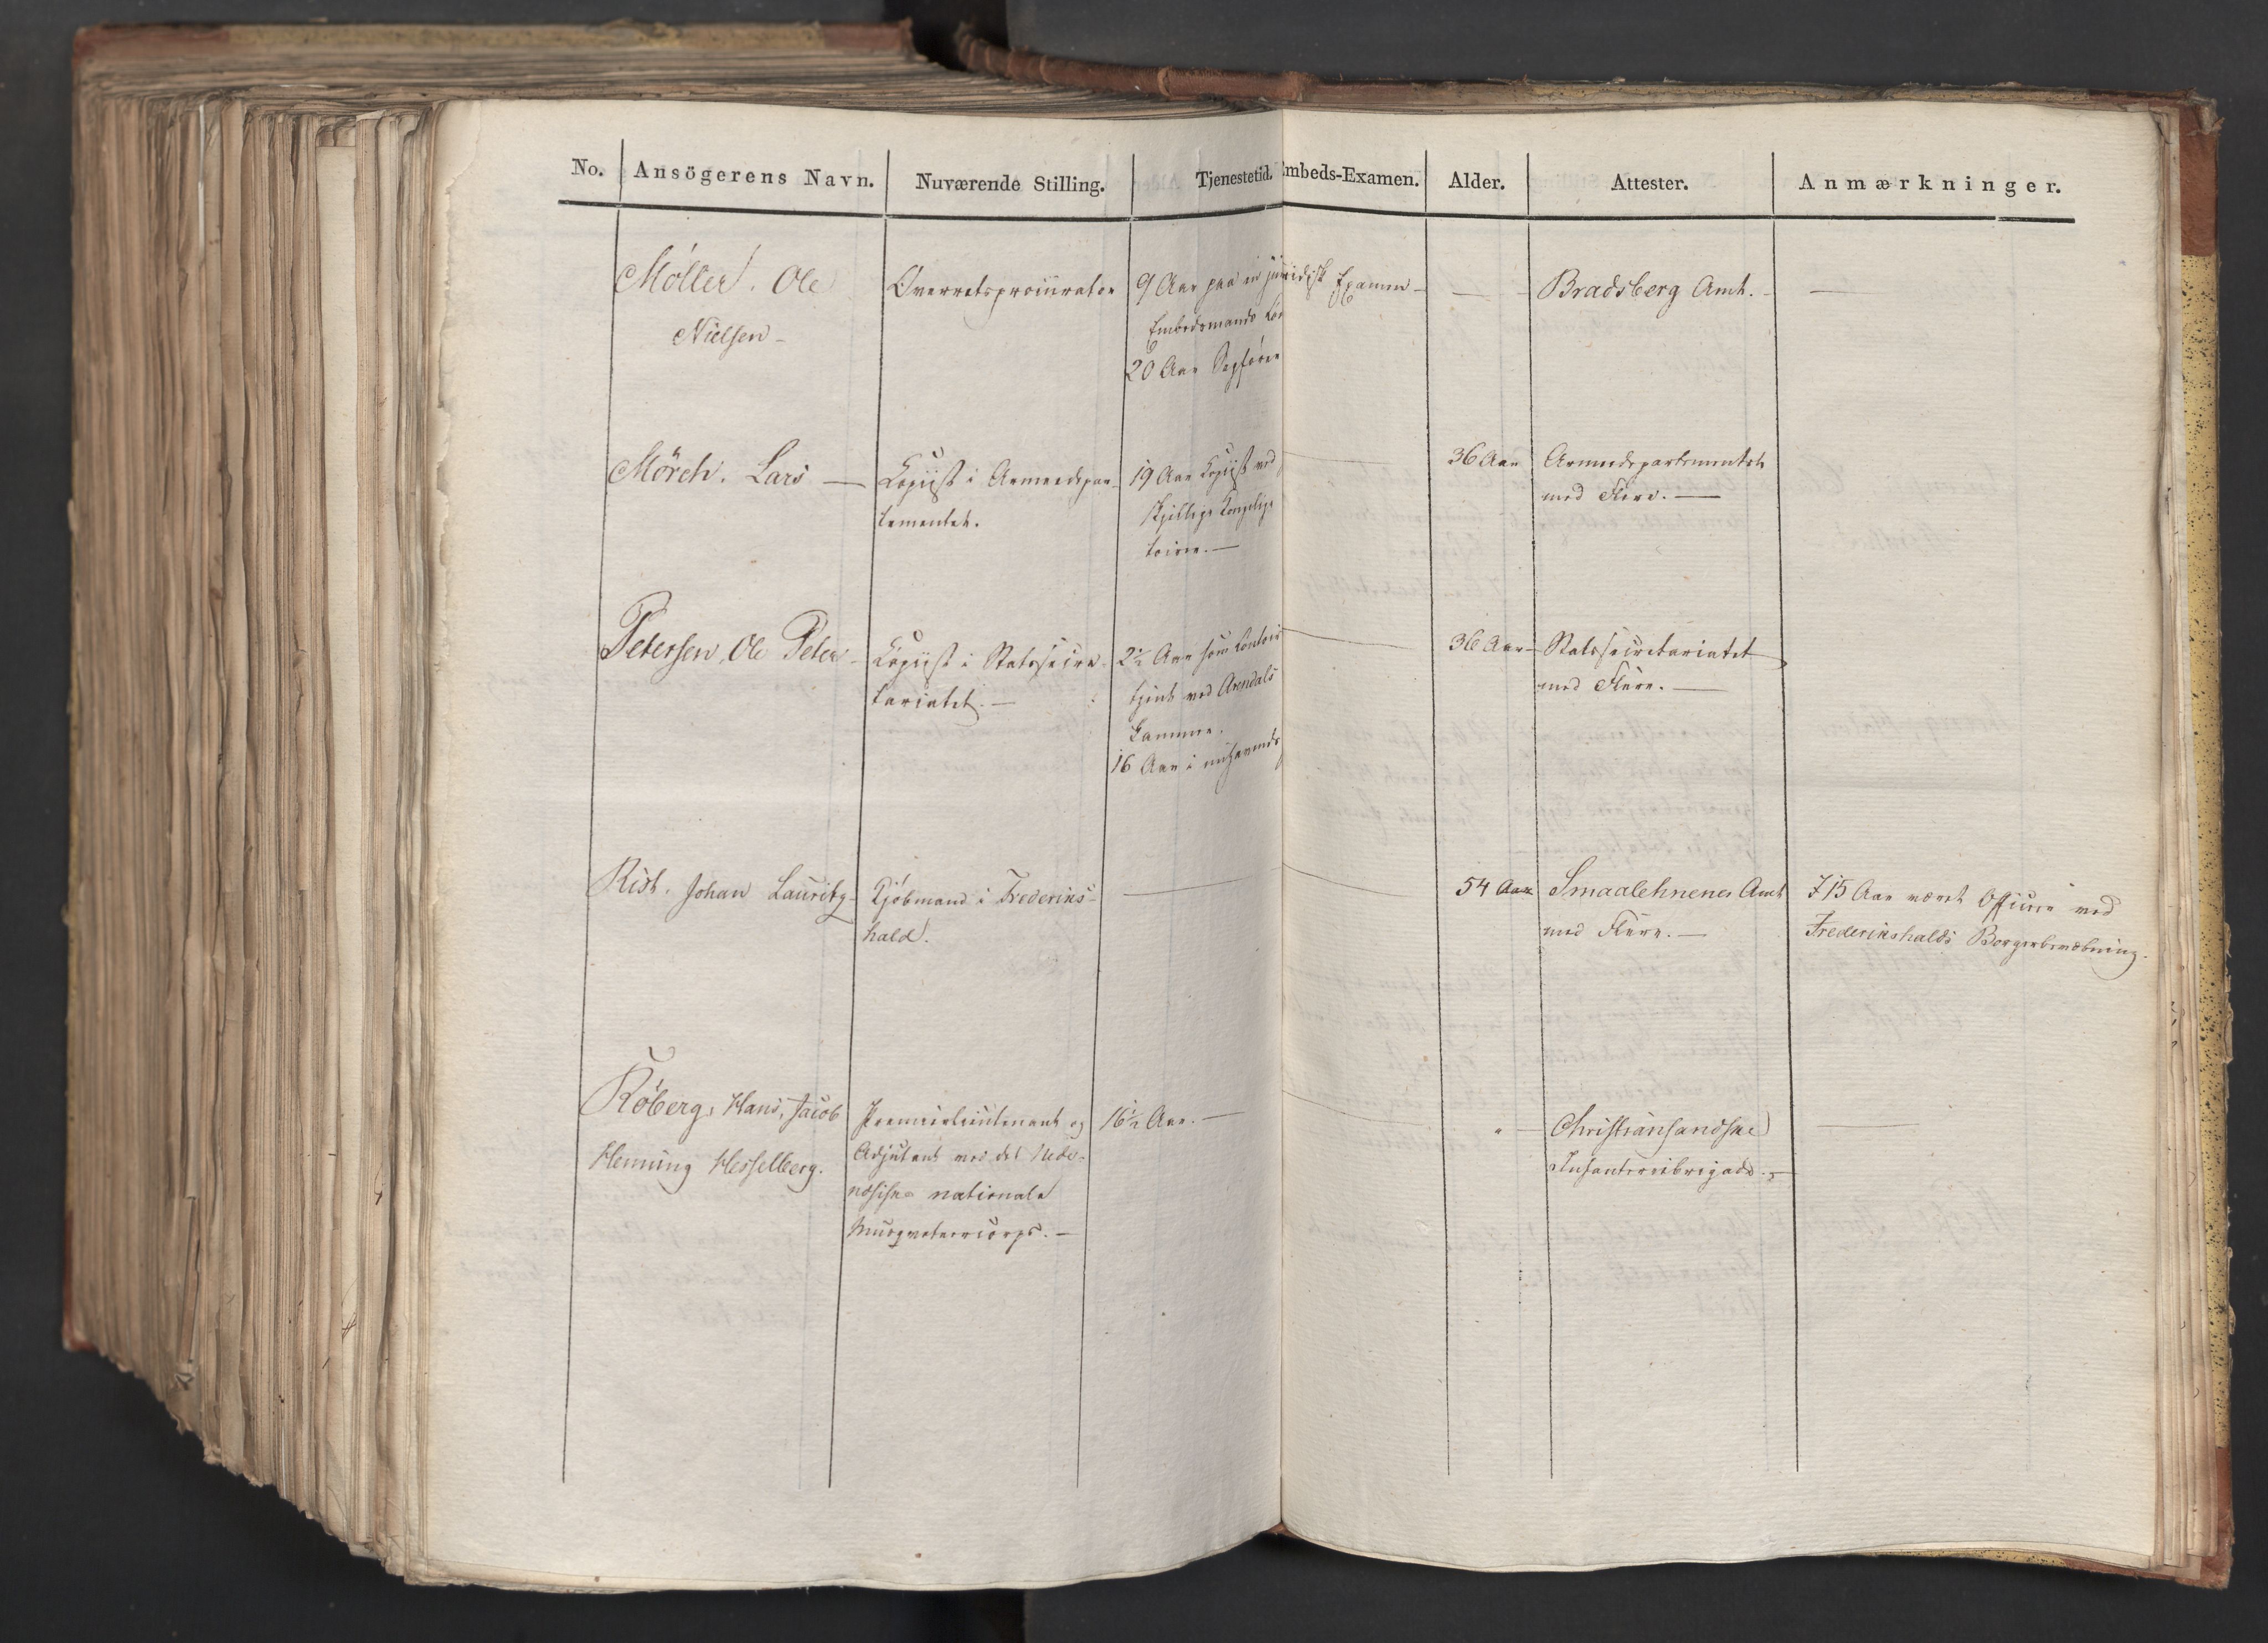 No. Ansögerens Navn. Nuværende Stilling. Tjenestetid. Embeds-Examen. Alder. Attester. Anmærkninger.
Möller, Ole
Nielsen -
Overretsprocurator
9 Aar paa en
Embedsmands
20 Aar Sagförer
juridisk Examen -
Bradsberg Amt. -
Mörch. Lars —
Copiist i Armeedepar-
tementet.
19 Aar Copiist ved
skjellige Kongelige
toirer. —
36 Aar
Armeedepartementet
med Flere. —
Petersen, Ole Peter -
Copiist i Statssecre-
tariatet. —
2½ Aar som Contoir
tjent ved Arendals
Kammer.
16 Aar i nuhavende
36 Aar -
Statssecretariatet
med Flere. —
Rist. Johan Lauritz -
Kjöbmand i Frederiks-
hald.
54 Aar
Smaalehnenes Amt
med Flere. —
I 15 Aar været Officier ved
Frederikshalds Borgerbevæbning.
Röberg, Hans, Jacob
Henning Hesselberg.
Premierlieutenant og
Adjutant ved det Nede-
næsiske nationale
Musqueteercorps. —
16½ Aar. —
"
Christiansandske
Infanteribrigade. -